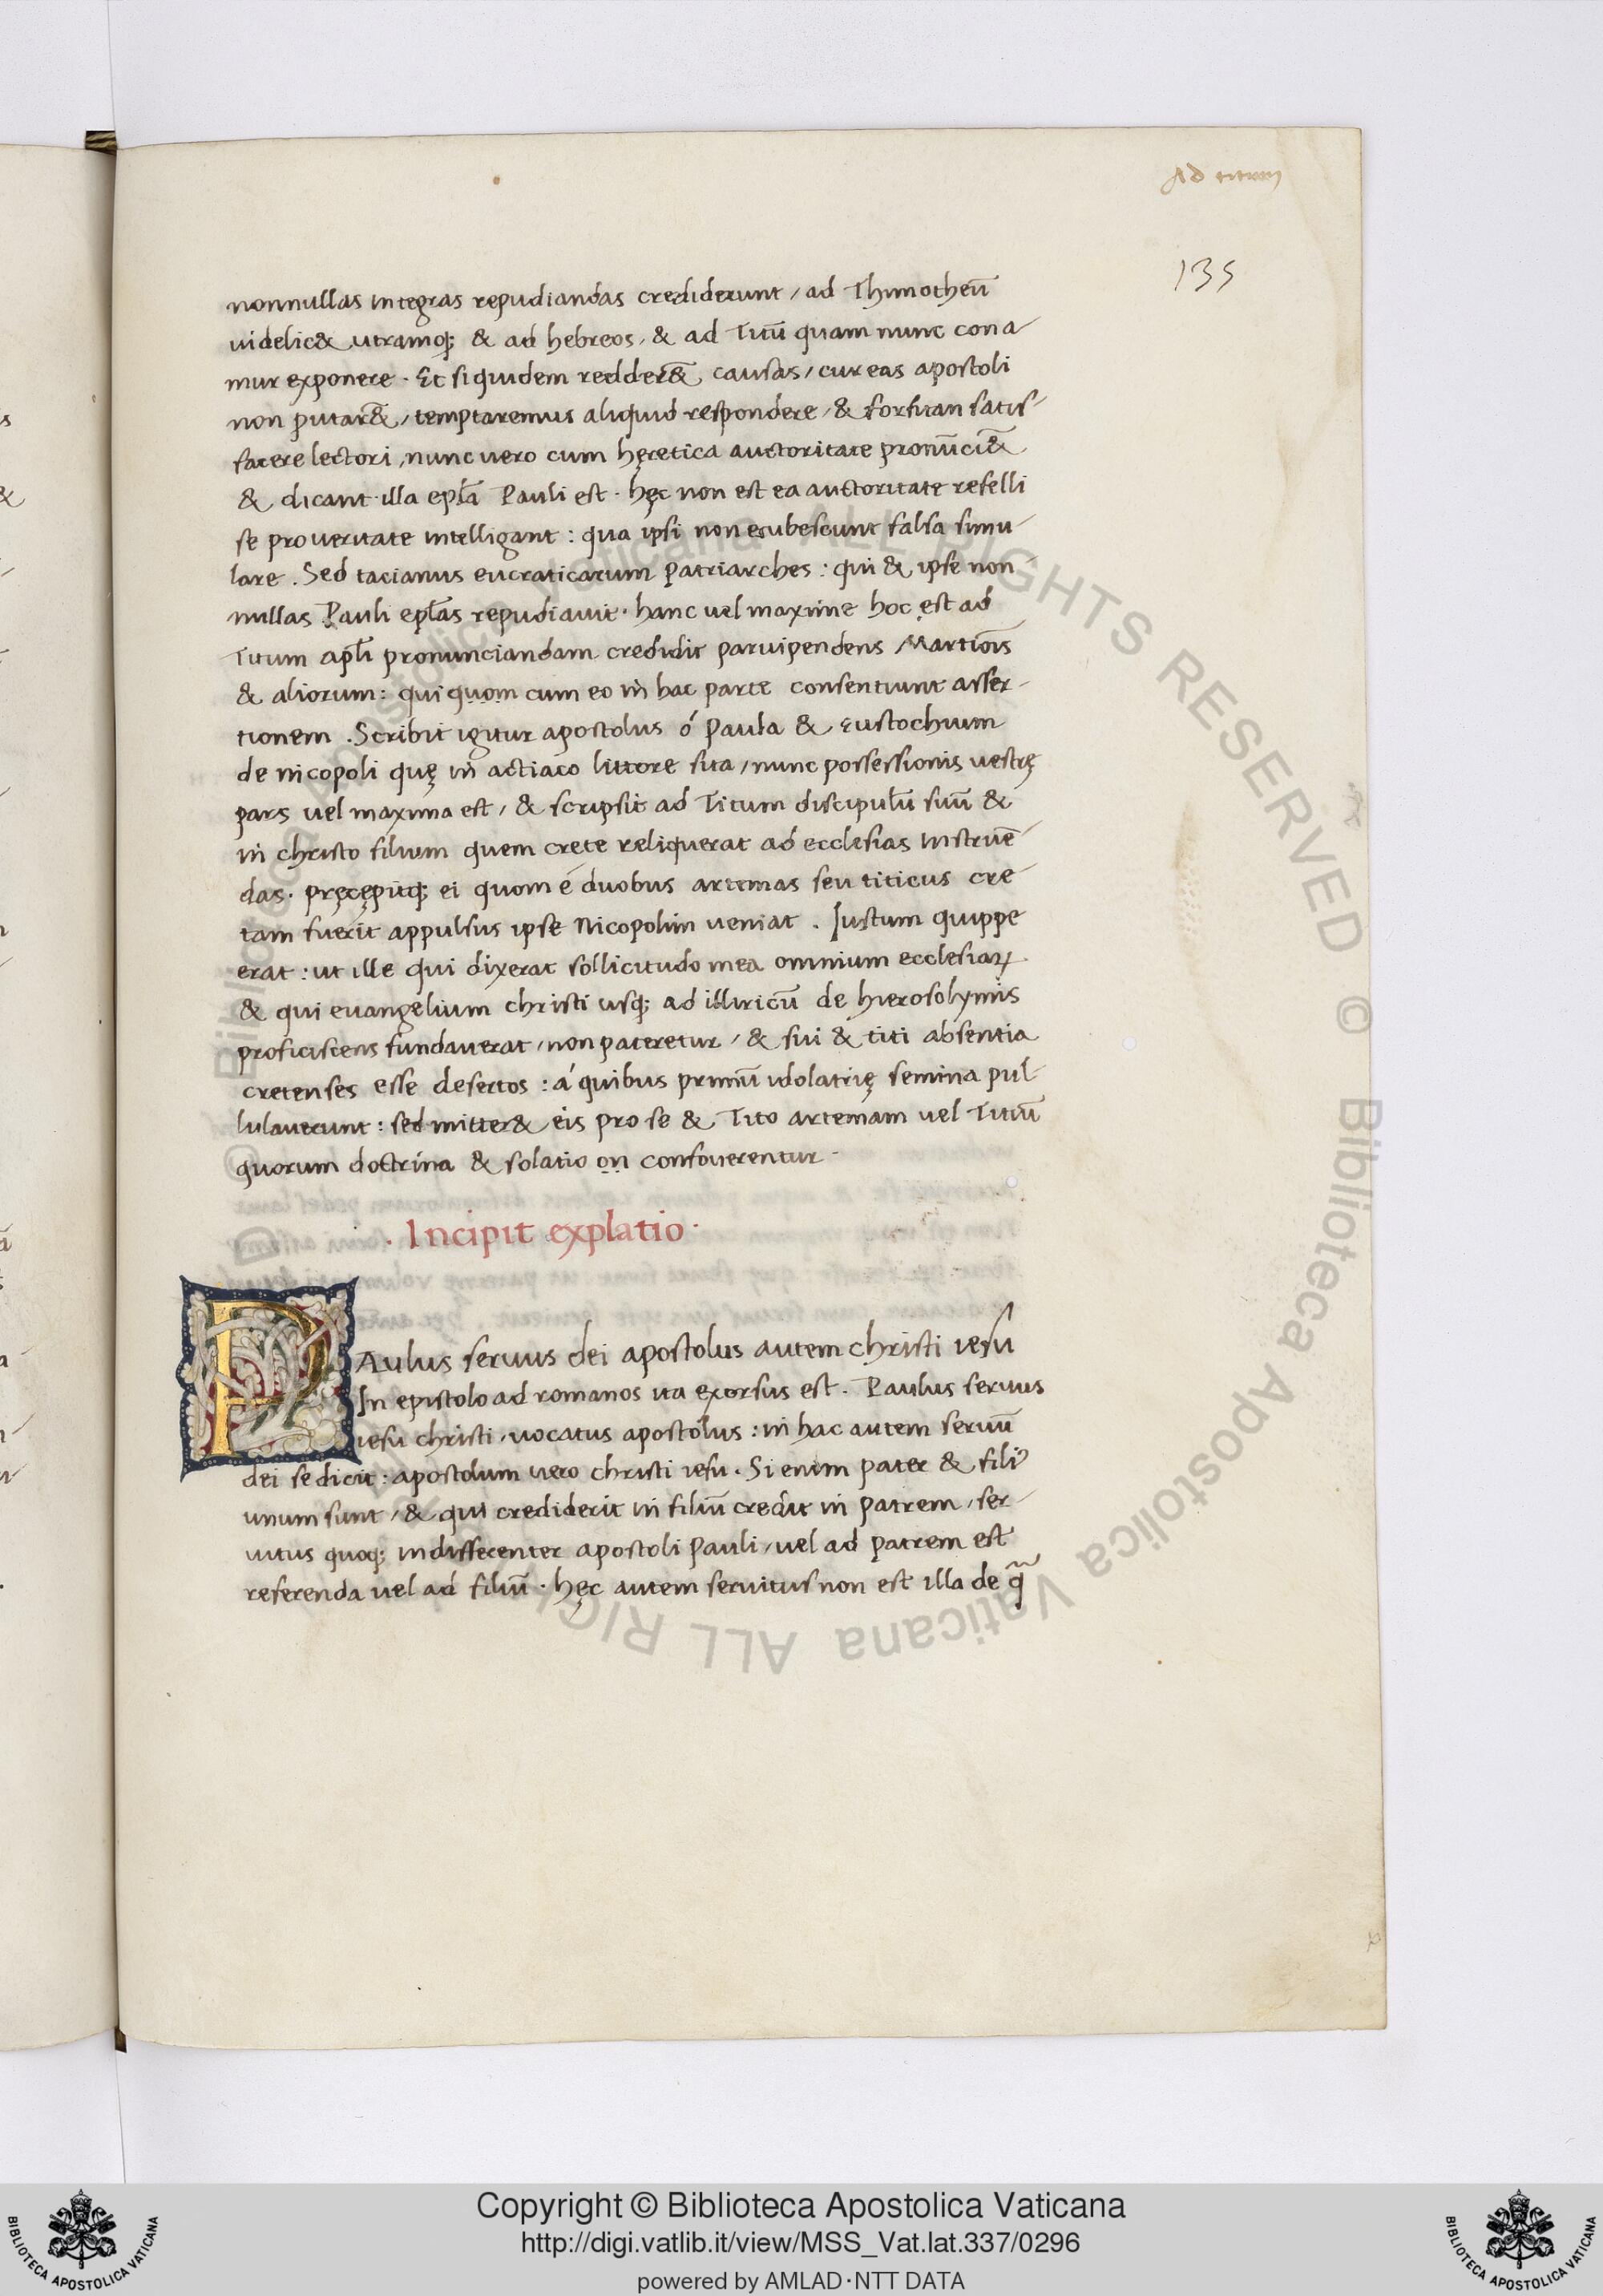 Ad titum
135
nonnullas integras repudiandas crediderunt / ad Thimotheū
uidelic& utramq; & ad hebreos / & ad Titū quam nunc cona-
mur exponere . Et siquidem redder&̄ causas / cur eas apostoli
non putar&̄ / temptaremus aliquid respondere / & forsitan satis-
facere lectori / nunc uero cum hęretica auctoritate pronūci&̄
& dicant illa epl̄a Pauli est . hęc non est ea auctoritate refelli
se pro ueritate intelligant : qua ipsi non erubescunt falsa simu-
lare . Sed tacianus eucraticarum Patriarches : qui & ipse non-
nullas Pauli epl̄as repudiauit . hanc uel maxime hoc est ad
Titum apl̄i pronunciandam credidit paruipendens Martiōis
& aliorum : qui quom cum eo in hac parte consentiunt asser-
tionem . Scribit igitur apostolus ó Paula & Eustochium
de nicopoli quę in actiaco littore sita / nunc possessionis uestrę
pars uel maxima est / & scripsit ad Titum discipulū suū &
in christo filium quem crete reliquerat ad ecclesias instruē-
das . pręcępitq; ei quom é duobus artemas seu titicus cre-
tam fuerit appulsus ipse Nicopolim ueniat . Iustum quippe
erat : ut ille qui dixerat sollicitudo mea omnium ecclesiaꝝ
& qui euangelium christi usq; ad illiricū de hierosolymis
proficiscens fundauerat / non pateretur / & sui & titi absentia
cretenses esse desertos : á quibus primū idolatrię semina pul-
lulauerunt : sed mitter& eis pro se & Tito artemam uel Titiū
quorum doctrina & solatio on confouerentur .
. Incipit explatio .
PAulus seruus dei apostolus autem christi iesu
In epistolo ad romanos ita exorsus est . Paulus seruus
iesu christi / uocatus apostolus : in hac autem seruū
dei se dicit : apostolum uero christi iesu . Si enim pater & filiꝰ
unum sunt / & qui crediderit in filiū credit in patrem / ser-
uitus quoq; indifferenter apostoli Pauli / uel ad patrem est
referenda uel ad filiū . hęc autem seruitus non est illa de q̄
Copyright © Biblioteca Apostolica Vaticana
http://digi.vatlib.it/view/MSS_Vat.lat.337/0296
powered by AMLAD·NTT DATA
BIBLIOTECA APOSTOLICA VATICANA
BIBLIOTECA APOSTOLICA VATICANA
© Biblioteca Apostolica Vaticana ALL RIGHTS RESERVED © Biblioteca Apostolica Vaticana ALL RIGHTS RESERVED